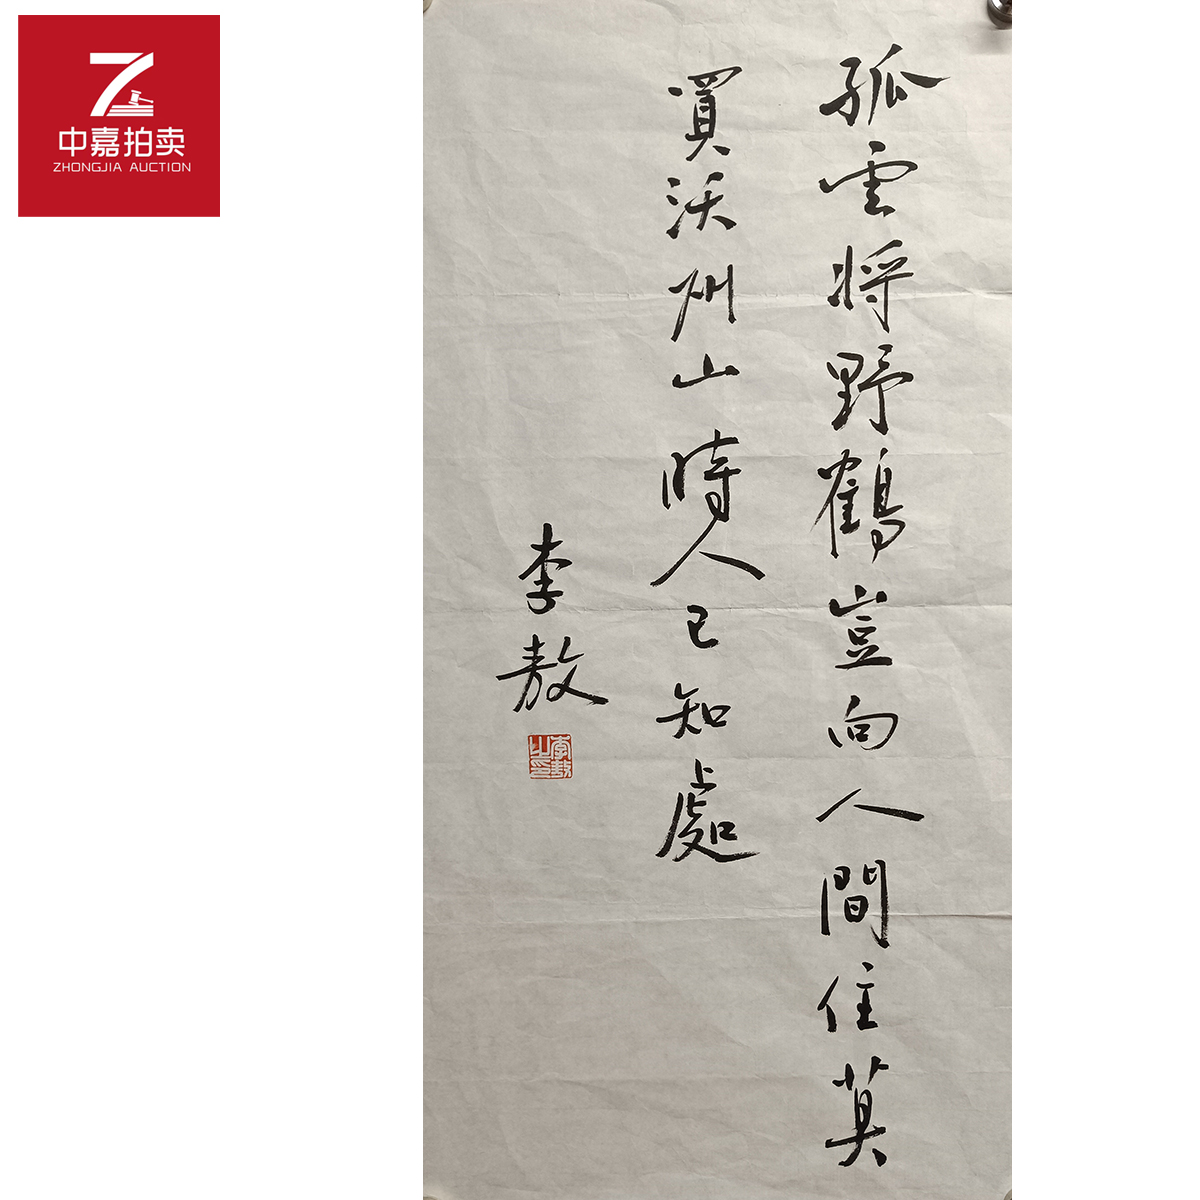 中嘉拍卖
ZHONGJIA AUCTION
孤雲將野鶴豈向人間住莫
買沃州山時人已知處
李敖
李敖之印